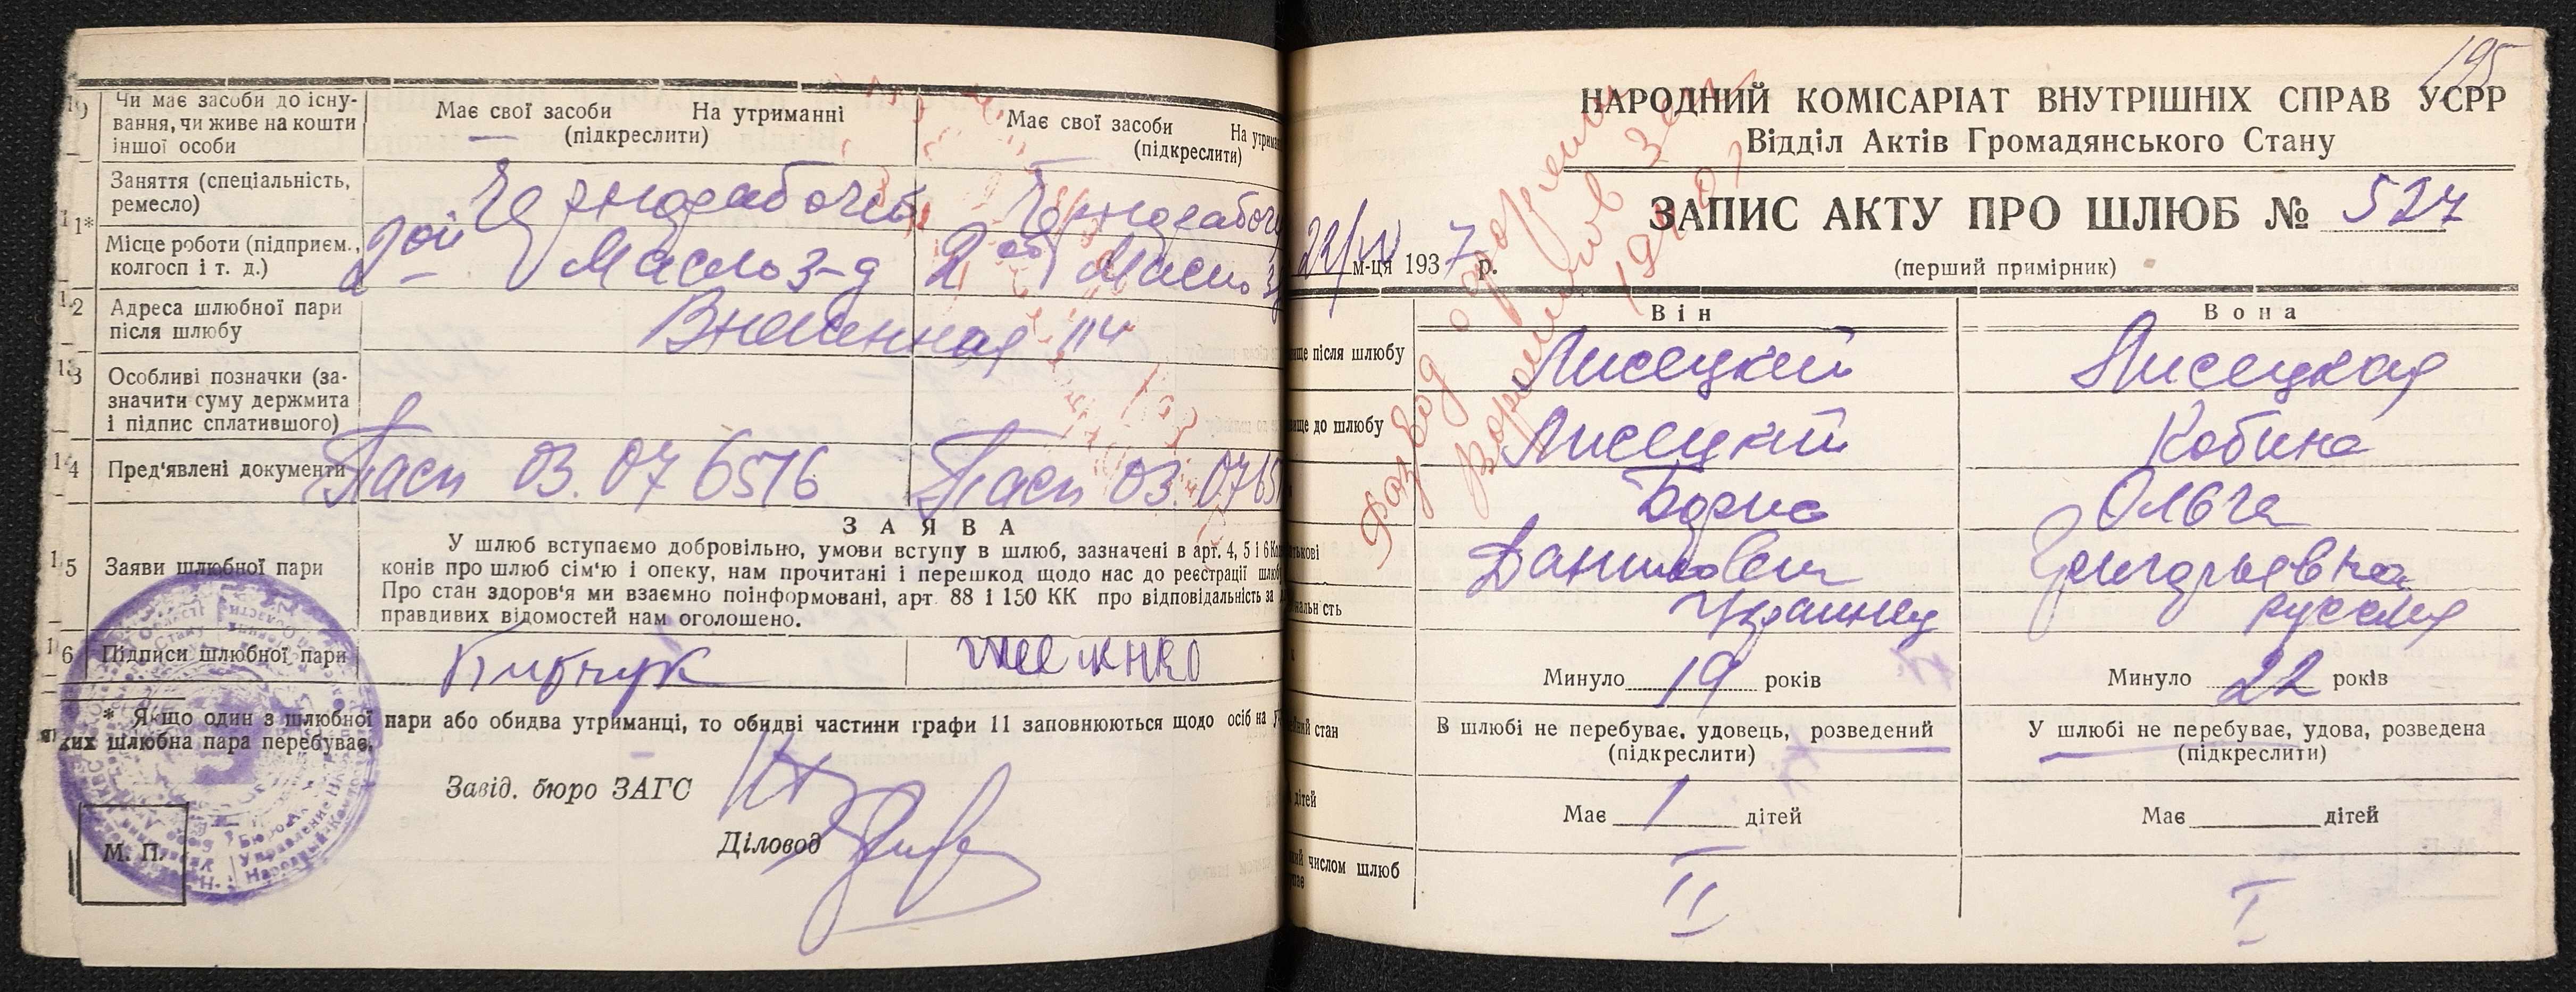 10 Чи має засоби до існу-
вання, чи живе на кошти
іншої особи
Має свої засоби На утриманні
(підкреслити)
Має свої засоби На утриман
(підкреслити)
11* Заняття (спеціальність,
ремесло)
Чернорабочий
Чернорабочи
Місце роботи (підприєм.,
колгосп і т. д.)
2ой Масло з-д
2ой Масло з-д
12 Адреса шлюбної пари
після шлюбу
114
13 Особливі позначки (за-
значити суму держмита
і підпис сплатившого)
14 Пред'явлені документи
Пасп 03.07 6516
Пасп 03.07 65
15 Заяви шлюбної пари
ЗАЯВА
У шлюб вступаємо добровільно, умови вступу в шлюб, зазначені в арт. 4, 5 і 6 Ко
конів про шлюб сім'ю і опеку, нам прочитані і перешкод щодо нас до реєстрації шлюб
Про стан здоров'я ми взаємно поінформовані, арт 88 і 150 КК про відповідальність за
правдивих відомостей нам оголошено.
16 Підписи шлюбної пари
* Якщо один з шлюбної пари або обидва утриманці, то обидві частини графи 11 заповнюються щодо осіб на
яких шлюбна пара перебуває.
Завід. бюро ЗАГС
Діловод
М. П.
195
НАРОДНИЙ КОМІСАРІАТ ВНУТРІШНІХ СПРАВ УСРР
Відділ Актів Громадянського Стану
ЗАПИС АКТУ ПРО ШЛЮБ № 527
(перший примірник)
м-ця 1937 р.
Развод оформлен
Він Вона
ище після шлюбу Лисецкий Лисецкая
ище до шлюбу Лисецкий Кобина
Борис Ольга
атькові Данилович Григорьевна
нальність Украинец русская
Минуло 19 років Минуло 22 років
йний стан
В шлюбі не перебуває, удовець, розведений
(підкреслити)
У шлюбі не перебуває, удова, розведена
(підкреслити)
дітей Має 1 дітей Має дітей
числом шлюб
II I